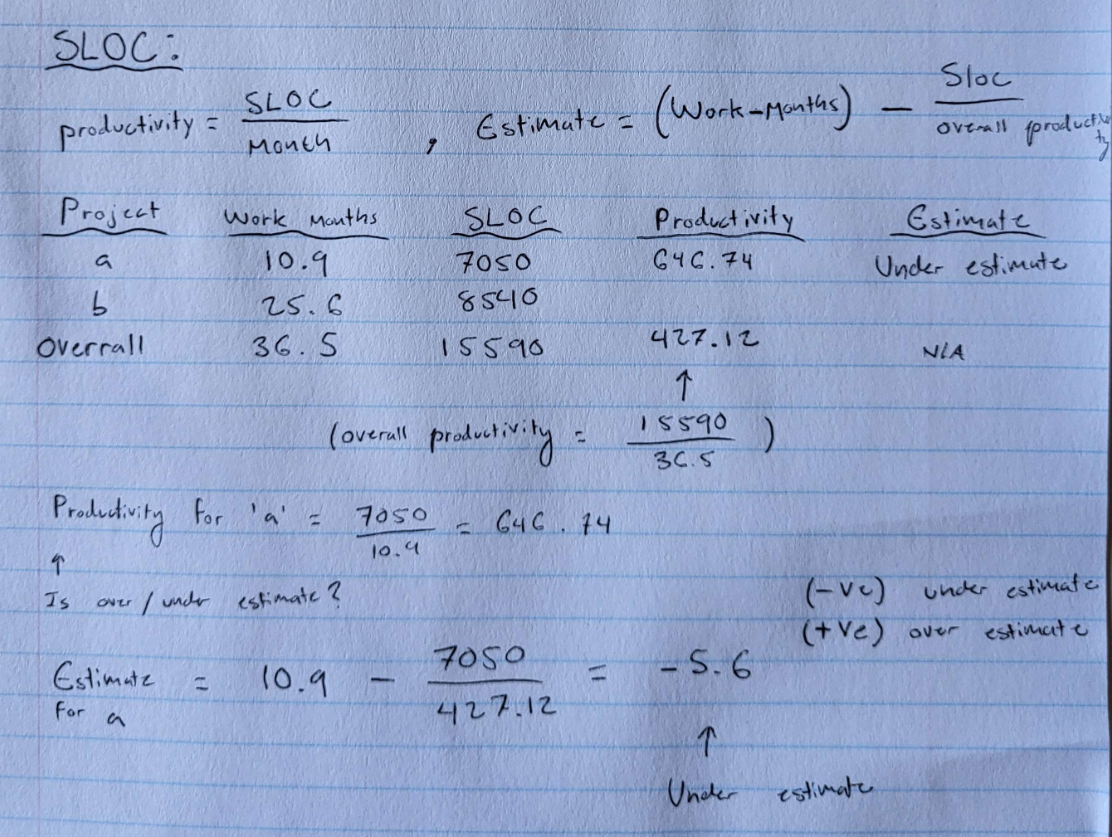 SLOC:
productivity = SLOC / Month , Estimate = (Work-Months) - Sloc / overall productivity
Project Work Months SLOC Productivity Estimate
a 10.9 7050 646.74 Under estimate
b 25.6 8540
Overrall 36.5 15590 427.12 N/A
↑
(overall productivity = 15590 / 36.5 )
Productivity for 'a' = 7050 / 10.9 = 646.74
↑
Is over / under estimate?
(-ve) under estimate
(+ve) over estimate
Estimate for a = 10.9 - 7050 / 427.12 = -5.6
↑
Under estimate